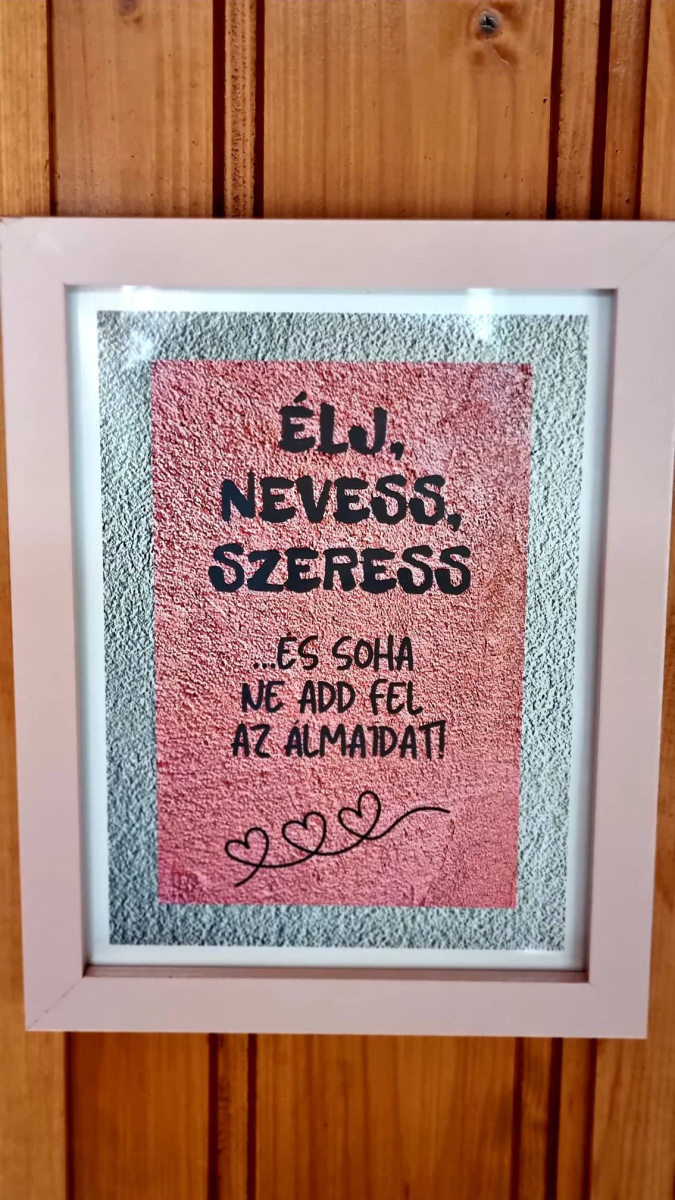 ÉLJ,
NEVESS,
SZERESS
...ÉS SOHA
NE ADD FEL
AZ ÁLMAIDAT!